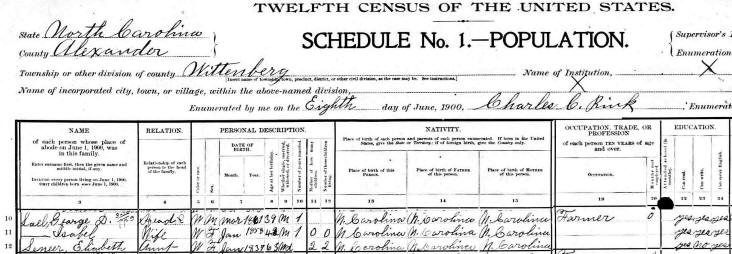 TWELFTH CENSUS OF THE UNITED STATES.
State North Carolina
County Alexander
SCHEDULE No. 1.—POPULATION.
Supervisor's
Enumeration
Township or other division of county Wittenberg Name of Institution, X X
[Insert name of township, town, precinct, district, or other civil division, as the case may be. See instructions.]
Name of incorporated city, town, or village, within the above-named division, X
Enumerated by me on the Eighth day of June, 1900, Charles C. Rink, Enumerat
NAME RELATION. PERSONAL DESCRIPTION. NATIVITY. OCCUPATION, TRADE, OR PROFESSION EDUCATION.
of each person whose place of abode on June 1, 1900, was in this family.
Enter surname first, then the given name and middle initial, if any.
INCLUDE every person living on June 1, 1900. OMIT children born since June 1, 1900.
Relationship of each person to the head of the family.
DATE OF BIRTH.
Month. Year.
Place of birth of each person and parents of each person enumerated. If born in the United States, give the State or Territory; if of foreign birth, give the Country only.
Place of birth of this PERSON. Place of birth of FATHER of this person. Place of birth of MOTHER of this person.
of each person TEN YEARS of age and over.
OCCUPATION.
3 4 5 6 7 8 9 10 11 12 13 14 15 19 20 21 22 23 24
10 George D. Head W M Mar 39 M 1 N. Carolina N. Carolina N. Carolina Farmer 0 yes yes yes
11 Isabel Wife W F Jan 42 M 1 0 0 N. Carolina N. Carolina N. Carolina yes yes yes
12 Elizabeth Aunt W F Jan 1837 63 Wd 2 2 N. Carolina N. Carolina N. Carolina yes no yes